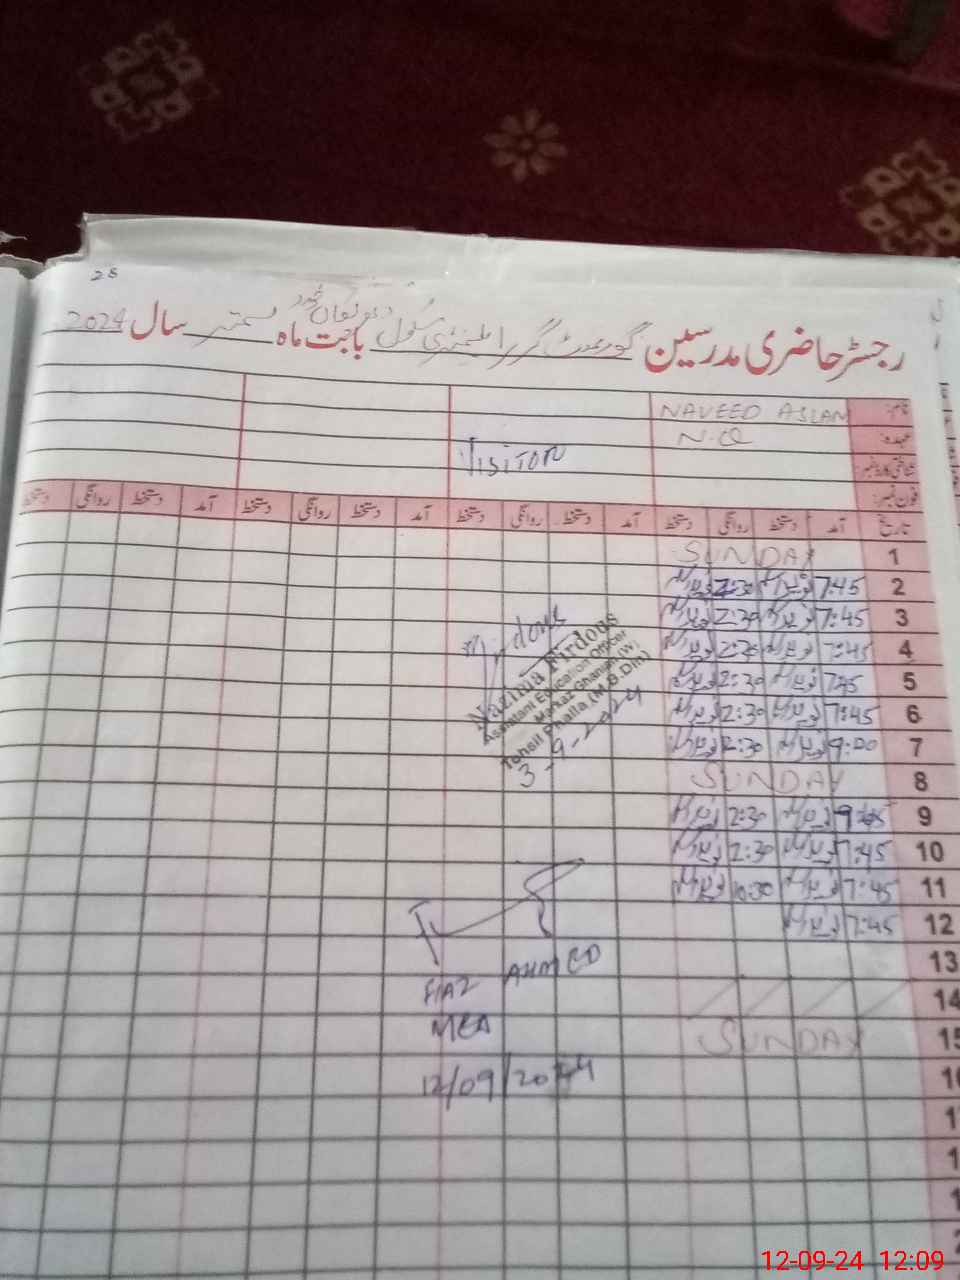 28
رجسٹر حاضری مدرسین گورنمنٹ گرلز ایلیمنٹری سکول بابت ماہ ستمبر سال 2024
نام: NAVEED ASLAM
عہدہ: N.Q
شناختی کارڈ نمبر: VISITOR
فون نمبر:
تاریخ آمد دستخط روانگی دستخط آمد دستخط روانگی دستخط آمد دستخط روانگی دستخط آمد دستخط روانگی دستخط
1 SUNDAY
2 7:45 2:30
3 7:45 2:30
4 7:45 2:30
5 7:45 2:30
6 7:45 2:30
7 9:00 2:30
8 SUNDAY
9 2:30
10 7:45 2:30
11 7:45 10:30
12 7:45
13
14
15 SUNDAY
Nazima Firdous
Assistant Education Officer
Markaz Ghanian (W)
Tehsil Phalia (M.B.Din)
3-9-2024
FIAZ AHMED
MEA
12/09/2024
12-09-24 12:09